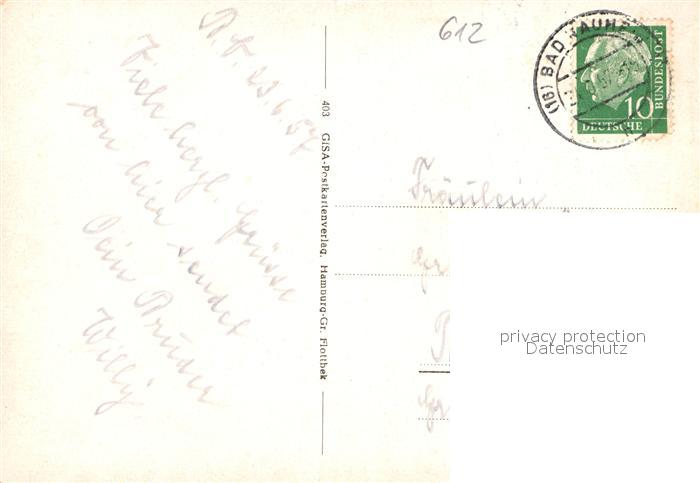 612
B.N. 23.6.57
Viele herzl. Grüsse
von hier sendet
Dein Bruder
Willy.
403 GISA-Postkartenverlag, Hamburg-Gr. Flottbek
(16) BAD NAUHE
10
DEUTSCHE
BUNDESPOST
Fräulein
privacy protection
Datenschutz